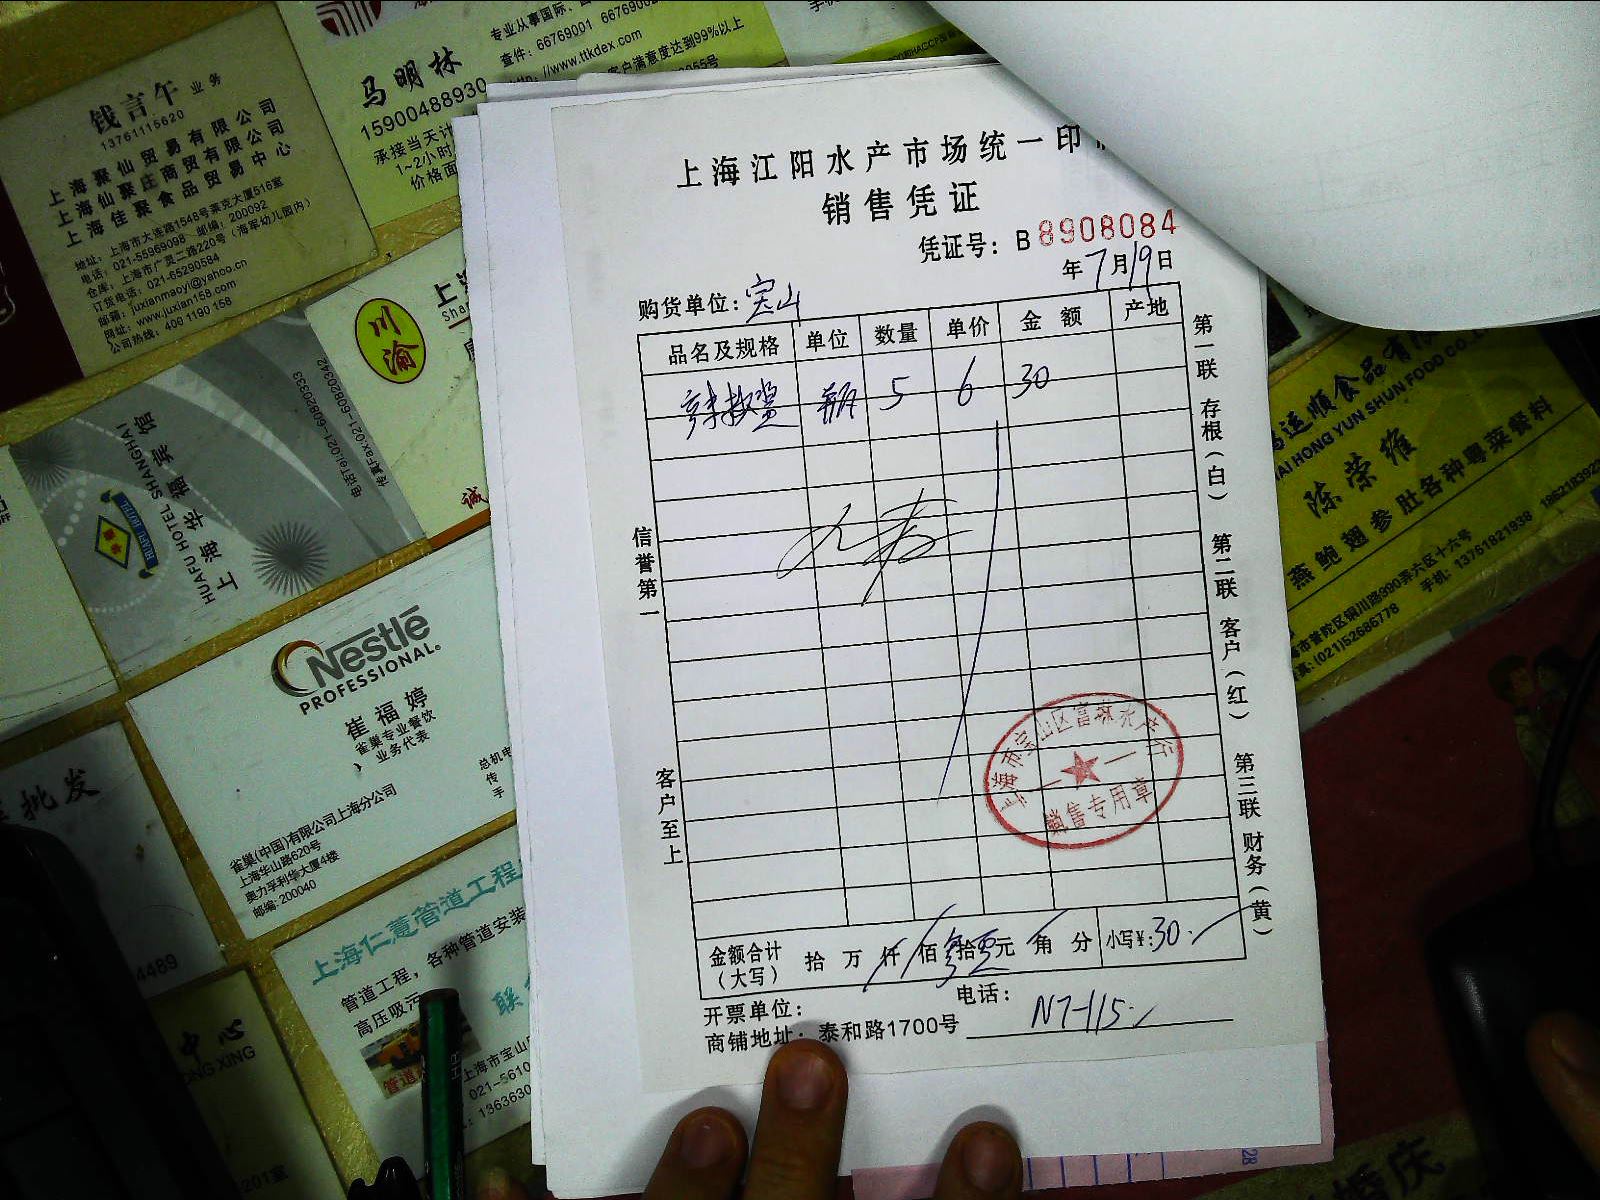 钱言午 业务
13761115620
上海聚仙贸易有限公司
上海仙聚庄商贸有限公司
上海佳聚食品贸易中心
地址：上海市大连路1548号莱克大厦516室
电话：021-55969098 邮编：200092
仓库：上海市广灵二路220号（海军幼儿园内）
订货电话：021-65290584
邮箱：juxianmaoyi@yahoo.cn
网址：www.juxian158.com
公司热线：400 1190 158
专业从事国际、
查件：66769001 6676900
http：//www.ttkdex.com
客户满意度达到99%以上
马明林
15900488930
承接当天
1~2小时
价格面
上海江阳水产市场统一印
销售凭证
凭证号：B 8908084
年7月19日
购货单位：宝山
品名及规格 单位 数量 单价 金额 产地
辣椒 瓶 5 6 30
信誉第一
客户至上
第一联 存根（白） 第二联 客户（红） 第三联 财务（黄）
上海市宝山区富林水产行
销售专用章
金额合计（大写） 拾 万 仟 佰 拾 元 角 分 小写¥:30.
开票单位： 电话：
商铺地址：泰和路1700号 N7-115
川渝
上海华福宾馆
HUAFU HOTEL SHANGHAI
电话Tel:021-60820333
传真Fax:021-60820342
Nestlé
PROFESSIONAL.
崔福婷
雀巢专业餐饮
业务代表
总机电
传
手
雀巢(中国)有限公司上海分公司
上海华山路620号
奥力孚利华大厦4楼
邮编: 200040
批发
4489
上海仁薏管道工程
管道工程，各种管道安装
高压吸污
联
管道
上海市宝山
021-5610
136363
中心
ONG XING
201室
运顺食品有限
HAI HONG YUN SHUN FOOD CO.
陈荣维
燕鲍翅参肚各种粤菜餐料
海市普陀区铜川路990弄六区十六号
真: (021)52686778 手机: 13761821938 1862183923
婚庆
28